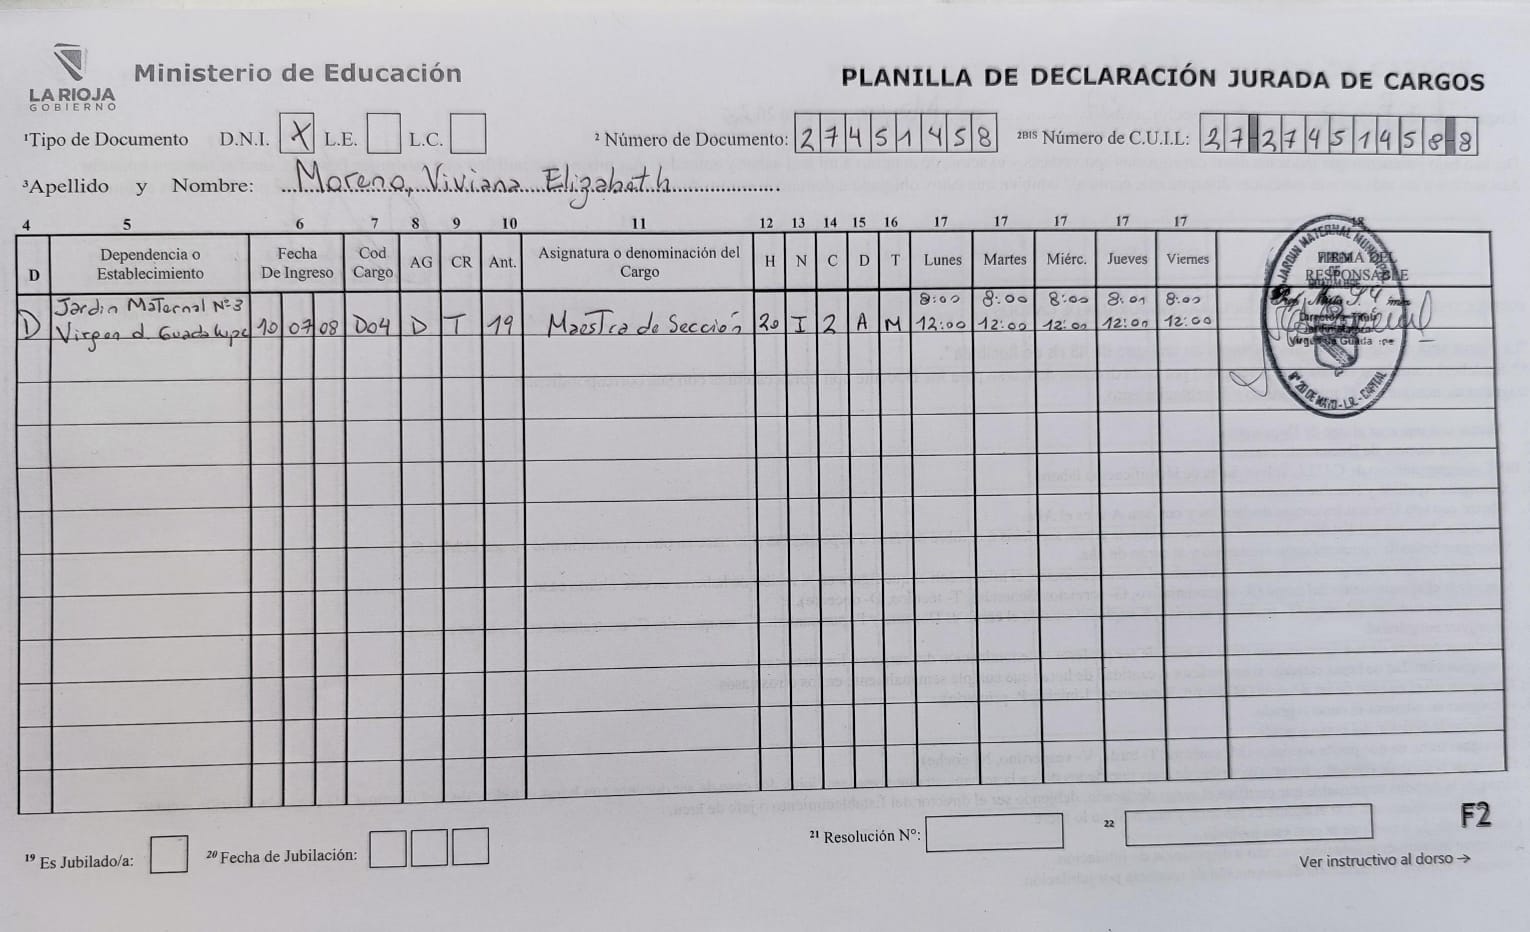 LA RIOJA
GOBIERNO
Ministerio de Educación
PLANILLA DE DECLARACIÓN JURADA DE CARGOS
¹Tipo de Documento D.N.I. X L.E. L.C. ² Número de Documento: 27451458 2BIS Número de C.U.I.L: 27-27451458-8
³Apellido y Nombre: Moreno, Viviana Elizabeth
4 5 6 7 8 9 10 11 12 13 14 15 16 17 17 17 17 17 18
D Dependencia o Establecimiento Fecha De Ingreso Cod Cargo AG CR Ant. Asignatura o denominación del Cargo H N C D T Lunes Martes Miérc. Jueves Viernes FIRMA DEL RESPONSABLE
Jardin Maternal Nº3 8:00 8:00 8:00 8:00 8:00
D Virgen d. Guadalupe 10 07 08 D04 D T 19 Maestra de Sección 20 I 2 A M 12:00 12:00 12:00 12:00 12:00
JARDIN MATERNAL
Virgen de Guadalupe
Bº 20 DE MAYO - L.R. - CAPITAL
¹⁹ Es Jubilado/a: ²⁰ Fecha de Jubilación: ²¹ Resolución N°: 22
F2
Ver instructivo al dorso →